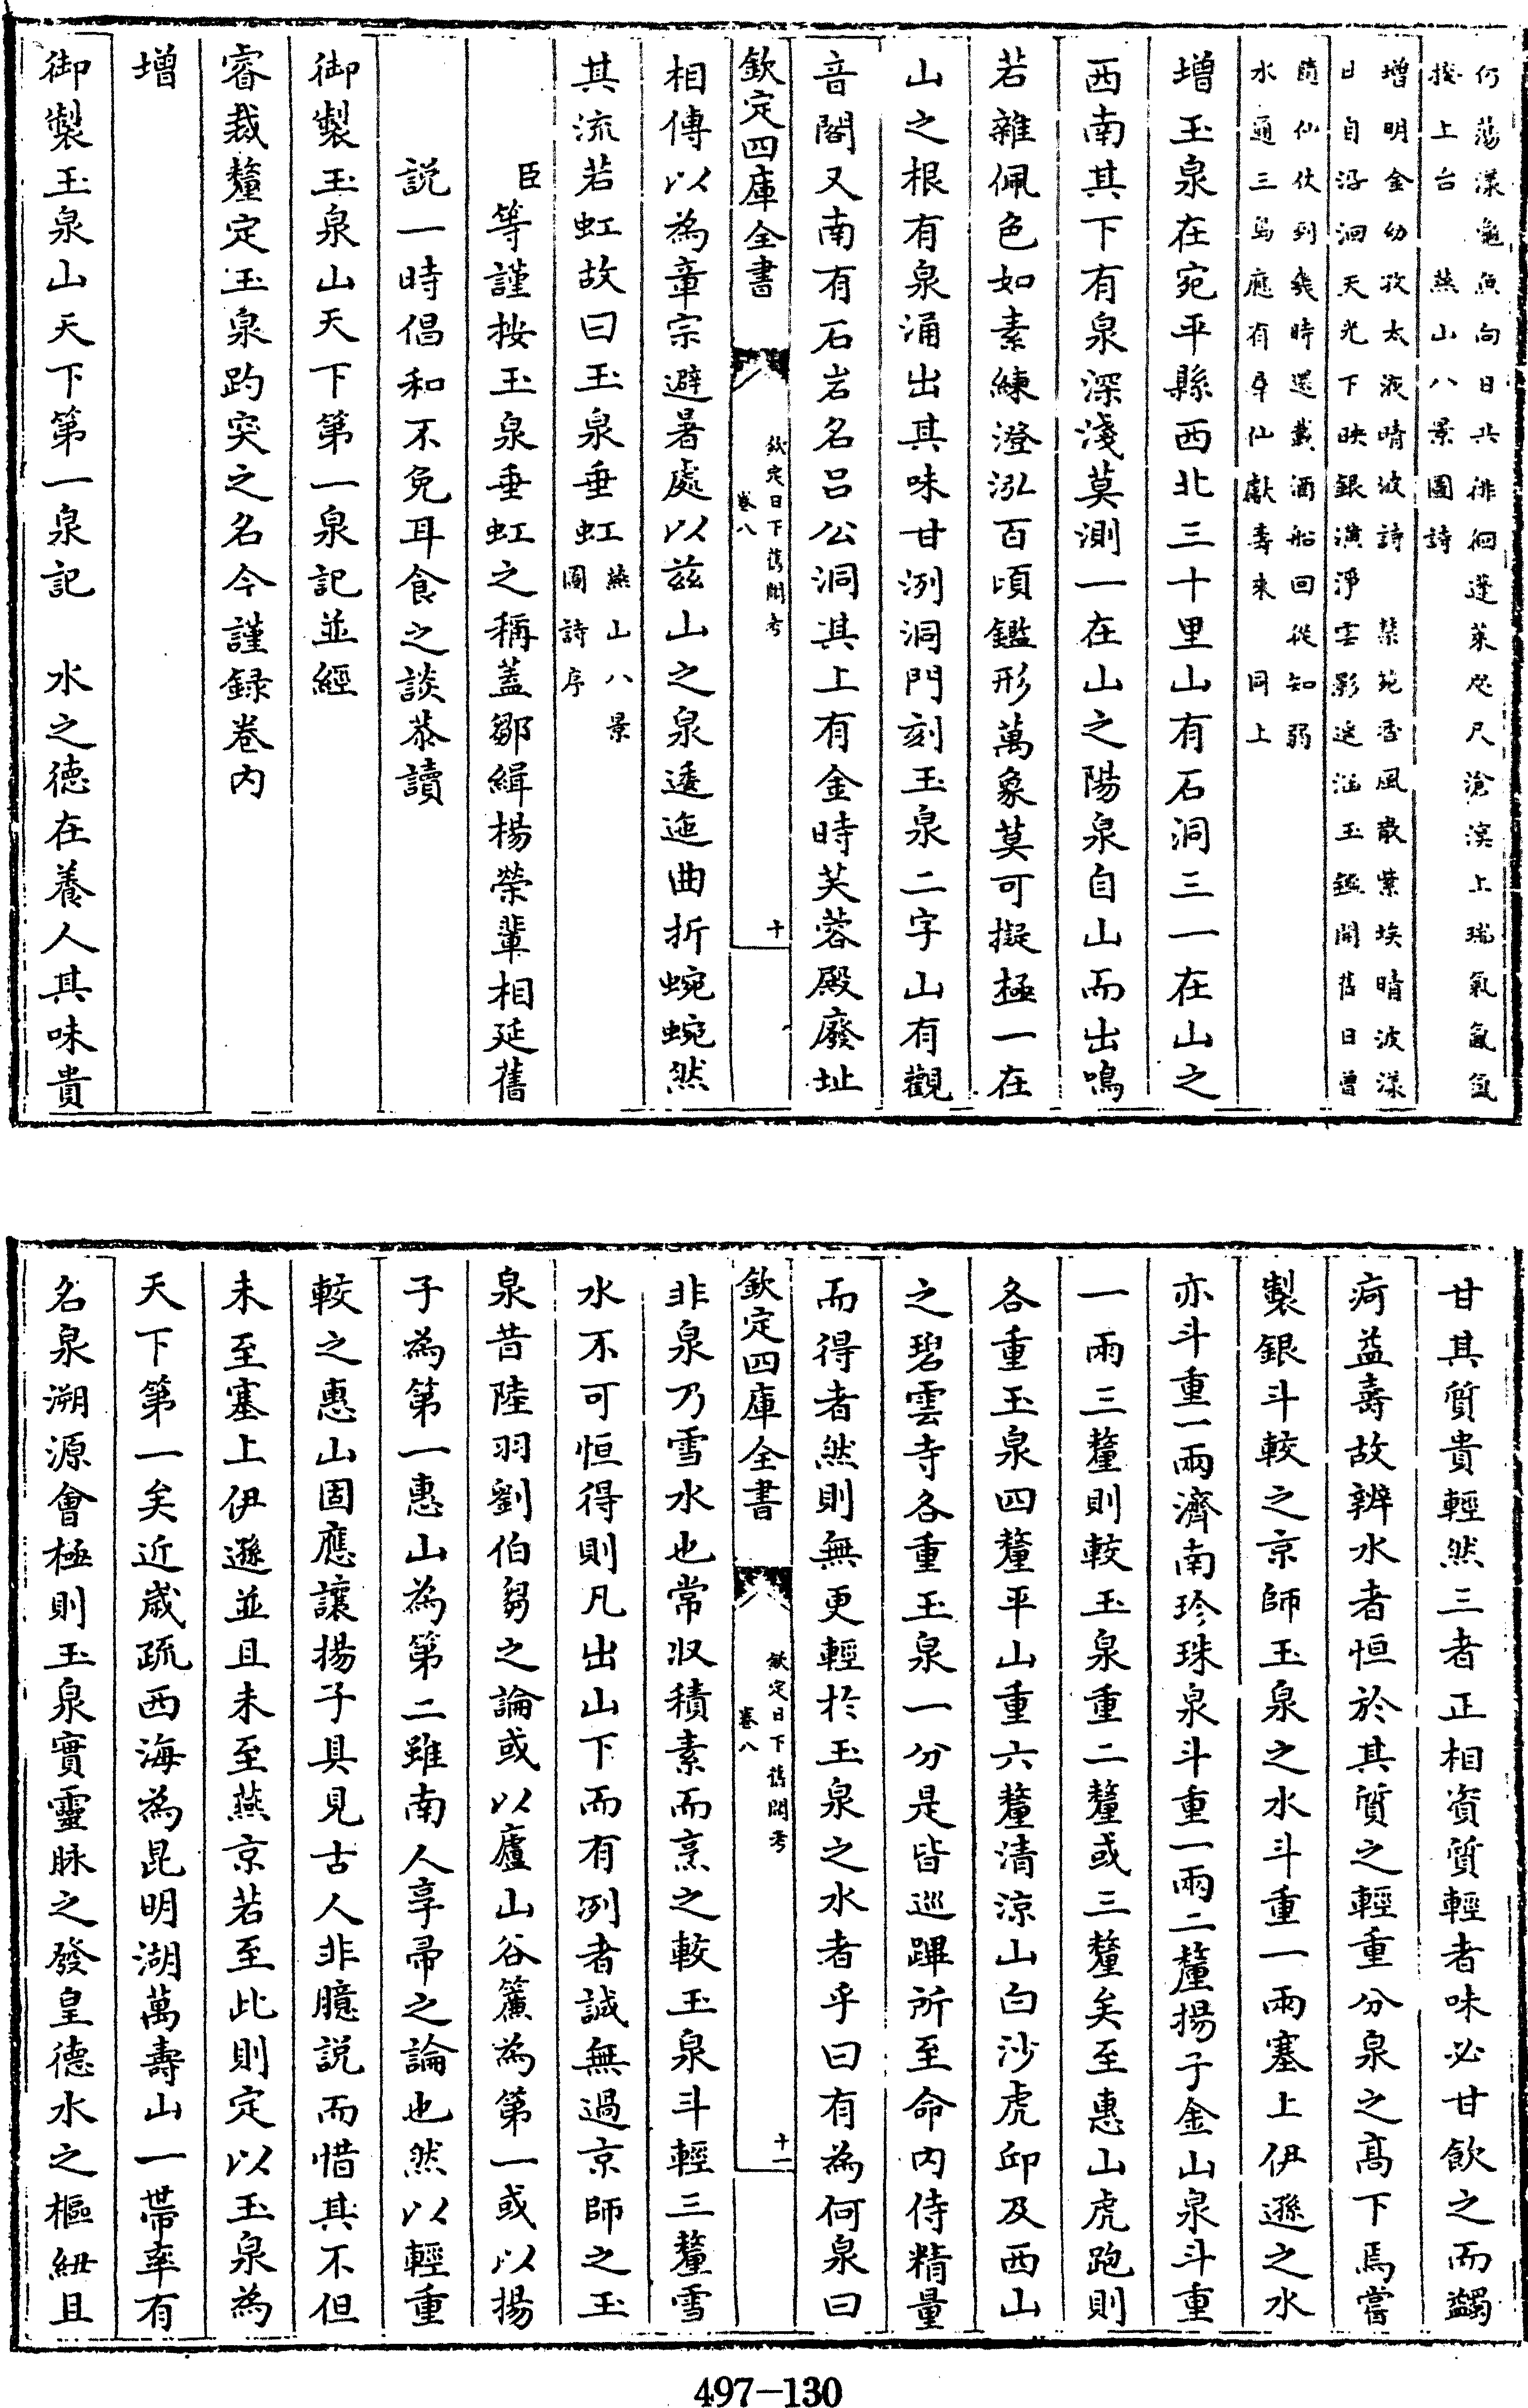 何蕩漾龜魚向日共徘徊蓬萊咫尺滄溟上瑞氣氤氲
接上台　燕山八景圖詩
增明金幼孜太液晴波詩　禁苑香風散紫埃晴波漾
日自沿洄天光下映銀潢淨雲影遙涵玉鏡開舊日曾
隨仙仗到幾時還載酒船回從知弱
水通三島應有羣仙獻壽來　同上
增玉泉在宛平縣西北三十里山有石洞三一在山之
西南其下有泉深淺莫測一在山之陽泉自山而出鳴
若雜佩色如素練澄泓百頃鑑形萬象莫可擬極一在
山之根有泉涌出其味甘冽洞門刻玉泉二字山有觀
音閣又南有石岩名呂公洞其上有金時芙蓉殿廢址
欽定四庫全書
欽定日下舊聞考
卷八
十
相傳以為章宗避暑處以兹山之泉逶迤曲折蜿蜿然
其流若虹故曰玉泉垂虹
燕山八景
圖詩序
臣等謹按玉泉垂虹之稱蓋鄒緝楊榮輩相延舊
説一時倡和不免耳食之談恭讀
御製玉泉山天下第一泉記並經
睿裁釐定玉泉趵突之名今謹録卷内
增
御製玉泉山天下第一泉記　水之德在養人其味貴
甘其質貴輕然三者正相資質輕者味必甘飲之而蠲
疴益壽故辨水者恒於其質之輕重分泉之高下焉嘗
製銀斗較之京師玉泉之水斗重一兩塞上伊遜之水
亦斗重一兩濟南珍珠泉斗重一兩二釐揚子金山泉斗重
一兩三釐則較玉泉重二釐或三釐矣至惠山虎跑則
各重玉泉四釐平山重六釐清涼山白沙虎邱及西山
之碧雲寺各重玉泉一分是皆巡蹕所至命内侍精量
而得者然則無更輕於玉泉之水者乎曰有為何泉曰
欽定四庫全書
欽定日下舊聞考
卷八
十一
非泉乃雪水也常収積素而烹之較玉泉斗輕三釐雪
水不可恒得則凡出山下而有冽者誠無過京師之玉
泉昔陸羽劉伯芻之論或以廬山谷簾為第一或以揚
子為第一惠山為第二雖南人享帚之論也然以輕重
較之惠山固應讓揚子具見古人非臆説而惜其不但
未至塞上伊遜並且未至燕京若至此則定以玉泉為
天下第一矣近歲疏西海為昆明湖萬壽山一帶率有
名泉溯源會極則玉泉實靈脉之發皇德水之樞紐且
497—130